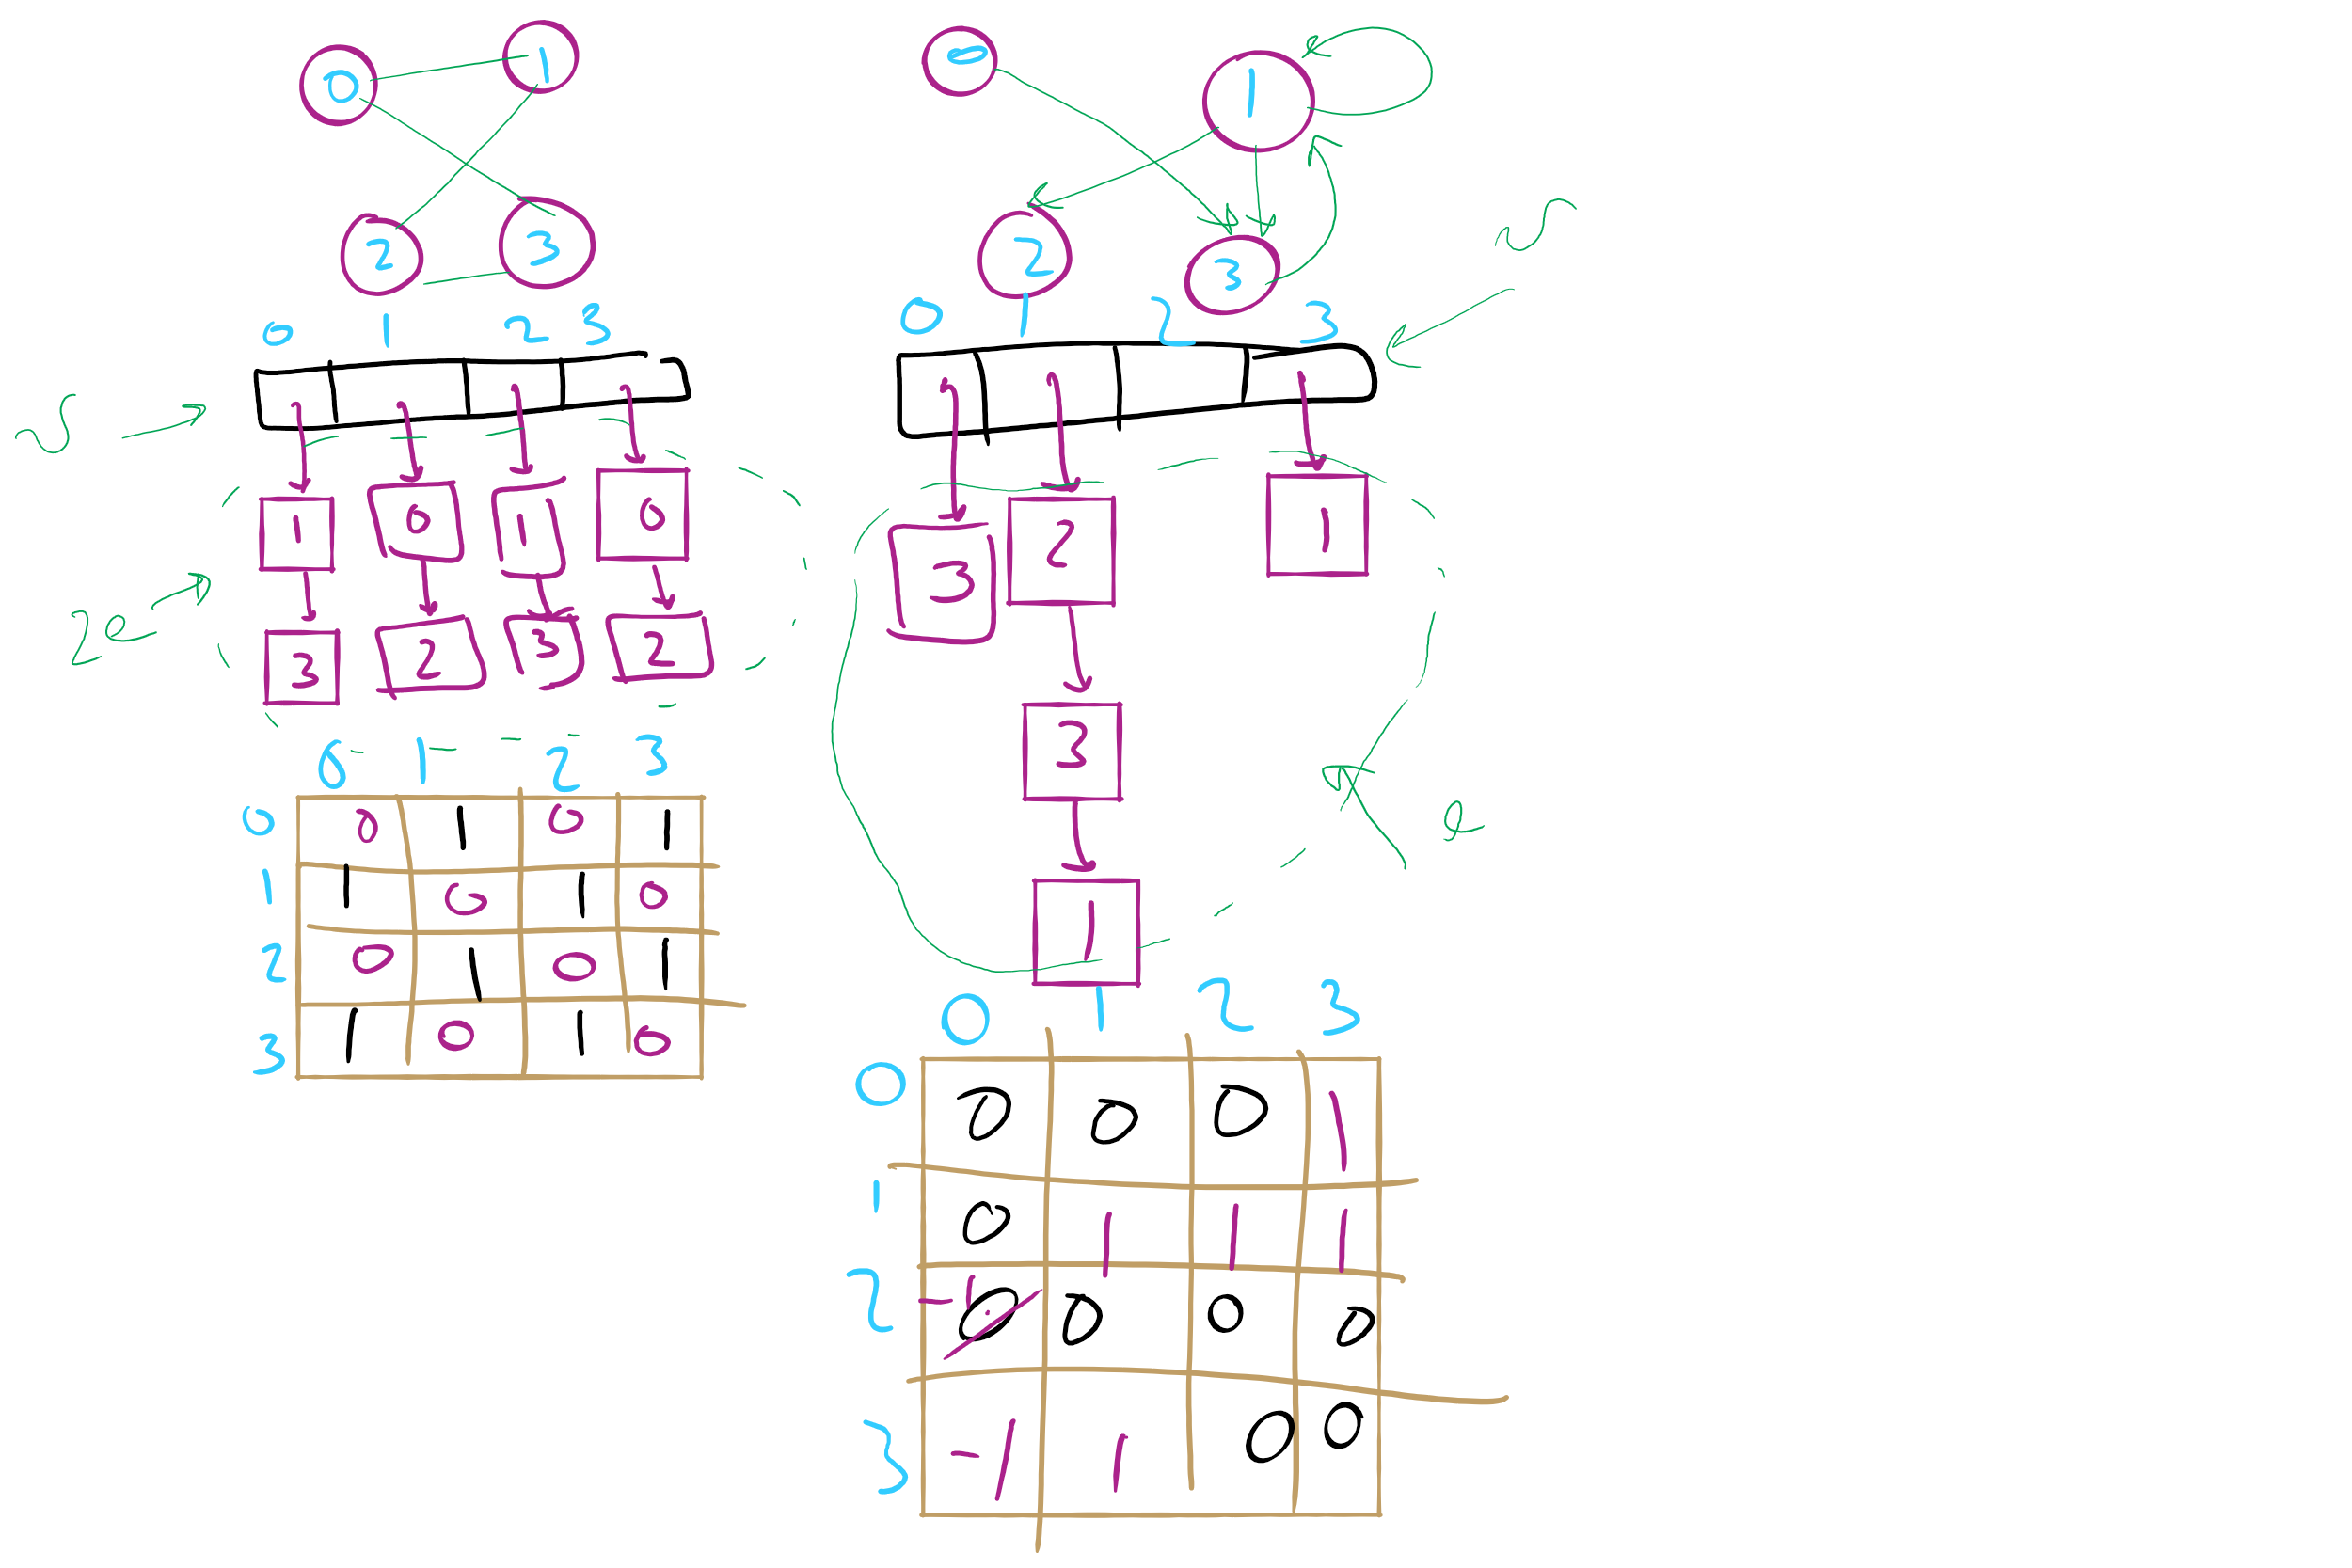 0 1
2 3
0 1 2 3
1 0 1 0
3 2 3 2
2e
0 1 2 3
0 0 1 0 1
1 1 0 1 0
2 0 1 0 1
3 1 0 1 0
0 1
2 3
0 1 2 3
3 2 1
3
1
e
0 1 2 3
0 0 0 0 1
1 0 1 1 1
2 0 0 0
3 -1 1 0 0